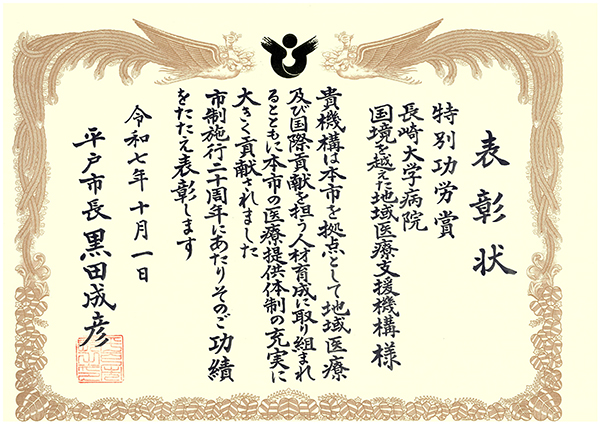 表彰状
特別功労賞
長崎大学病院
国境を越えた地域医療支援機構 様
貴機構は本市を拠点として地域医療
及び国際貢献を担う人材育成に取り組まれ
るとともに本市の医療提供体制の充実に
大きく貢献されました
市制施行二十周年にあたりそのご功績
をたたえ表彰します
令和七年十月一日
平戸市長 黒田成彦